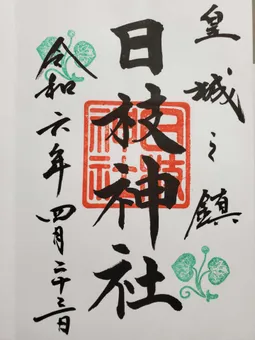 皇城之鎮
日枝神社
令和六年四月二十三日